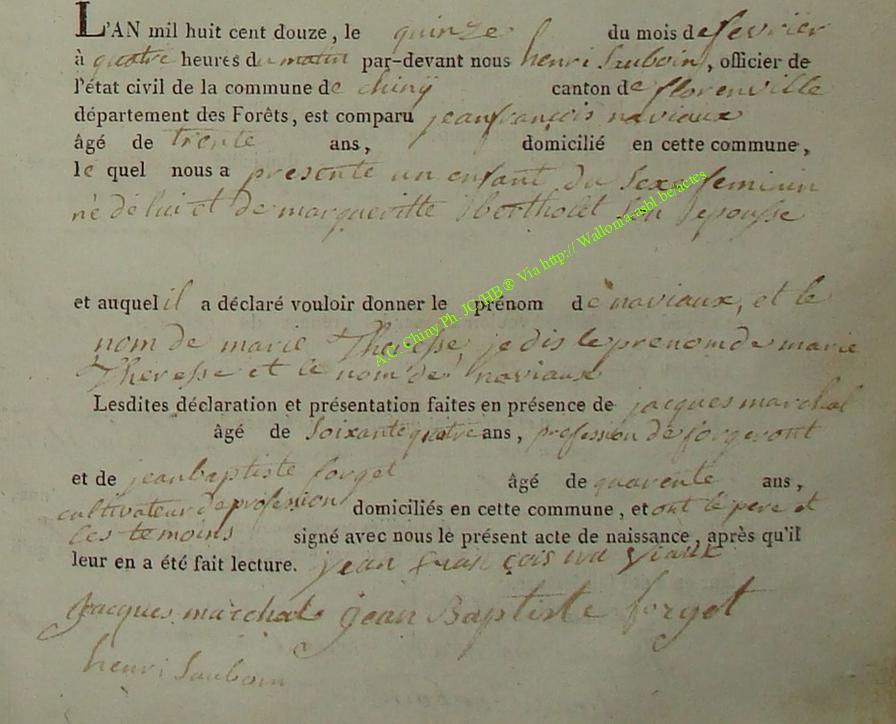 L'AN mil huit cent douze, le quinze du mois de fevrier
à quatre heures du matin par-devant nous henri Sauboin, officier de
l'état civil de la commune de chiny canton de florenville
département des Forêts, est comparu jeanfrançois naviaux
âgé de trente ans, domicilié en cette commune,
le quel nous a presenté un enfant du Sexe feminin
né de lui et de margueritte Bertholet Son Epousse
et auquel il a déclaré vouloir donner le prénom de naviaux, et le
nom de marie Theresse, je dis le prenom de marie
Theresse et le nom de naviaux
Lesdites déclaration et présentation faites en présence de jacques marchal
âgé de Soixante quatre ans, profession de forgeront
et de jeanbaptiste forget âgé de quarente ans,
cultivateur de profession domiciliés en cette commune, et ont le pere et
les temoins signé avec nous le présent acte de naissance, après qu'il
leur en a été fait lecture. jean fran çois na viaux
jacques marchal jean Baptiste forget
henri Sauboin
A.C. Chiny Ph. JC/HB® Via http:// Wallonia-asbl.be/actes